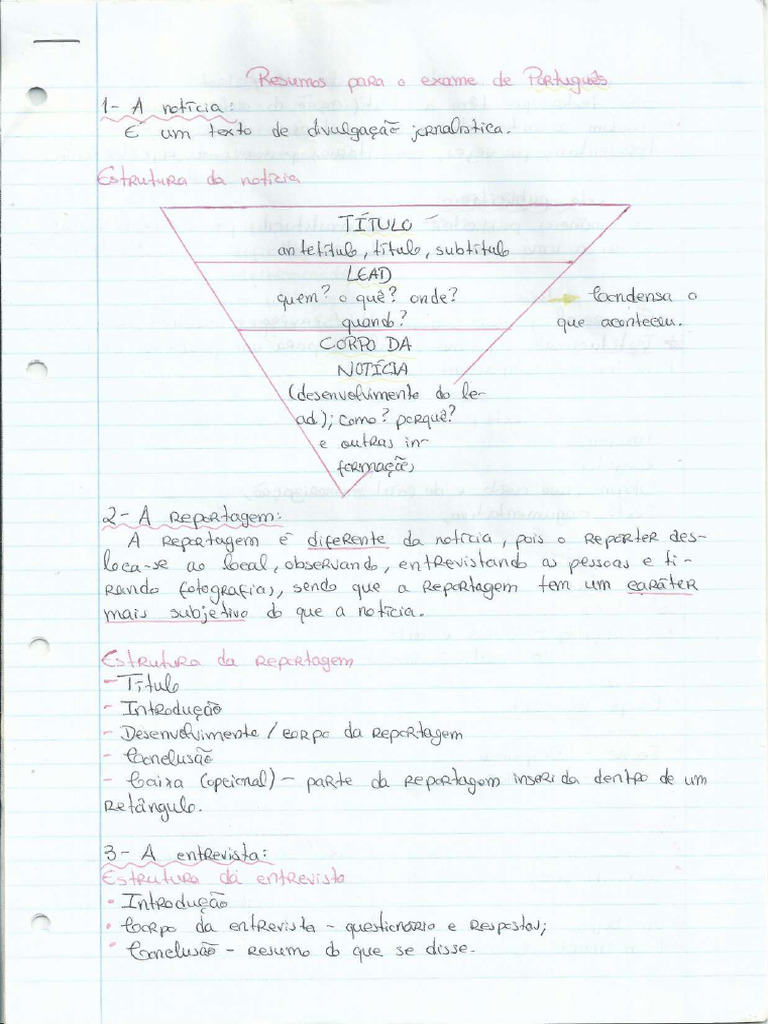 Resumos para o exame de Português
1- A notícia:
É um texto de divulgação jornalística.
Estrutura da notícia
TÍTULO
antetítulo, título, subtítulo
LEAD
quem? o quê? onde?
quando?
→ Condensa o
que aconteceu.
CORPO DA
NOTÍCIA
(desenvolvimento do le-
ad); como? porquê?
e outras in-
formações
2- A reportagem:
A reportagem é diferente da notícia, pois o reporter des-
loca-se ao local, observando, entrevistando as pessoas e ti-
rando fotografias, sendo que a reportagem tem um caráter
mais subjetivo do que a notícia.
Estrutura da reportagem
- Título
- Introdução
- Desenvolvimento / corpo da reportagem
- Conclusão
- Caixa (opcional) - parte da reportagem inserida dentro de um
retângulo.
3- A entrevista:
Estrutura da entrevista
• Introdução
• Corpo da entrevista - questionário e respostas;
• Conclusão - resumo do que se disse.